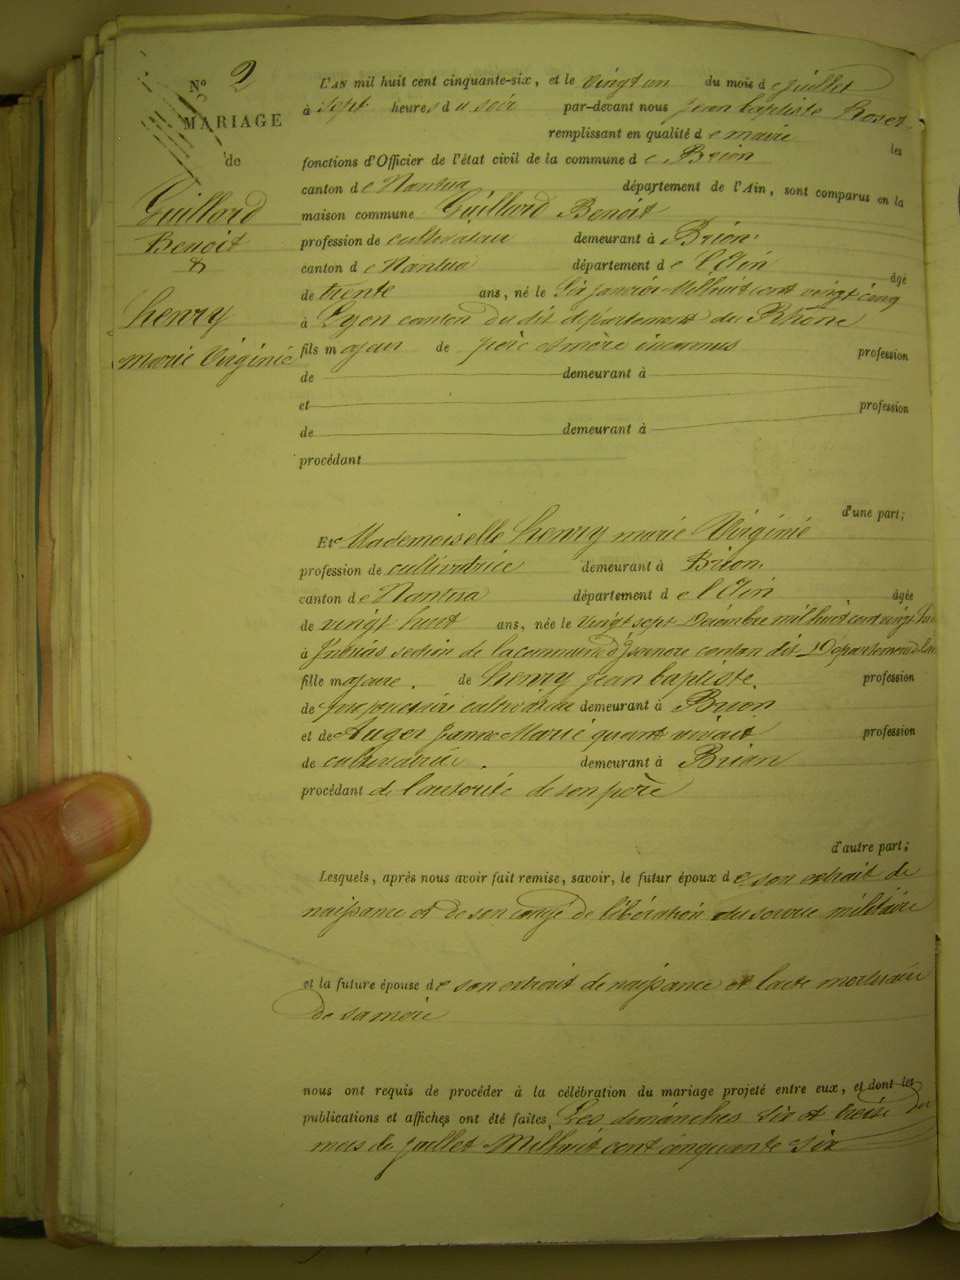 N° 2
MARIAGE
de
Guillard
Benoit
&
henry
marie Virginie
L'AN mil huit cent cinquante-six, et le vingt un du mois de juillet
à sept heures du soir par-devant nous jean baptiste Roset
remplissant en qualité de maire les
fonctions d'Officier de l'état civil de la commune de Brion
canton de Nantua département de l'Ain, sont comparus en la
maison commune Guillard Benoit
profession de cultivateur demeurant à Brion
canton de Nantua département de l'Ain âgé
de trente ans, né le Six janvier Milhuit cent vingt cinq
à Lyon canton du dit département du Rhône
fils majeur de père et mère inconnus profession
de demeurant à
et profession
de demeurant à
procédant
d'une part;
Et Mademoiselle henry marie Virginie
profession de cultivatrice demeurant à Brion
canton de Nantua département de l'Ain âgée
de vingt huit ans, née le Vingt sept Décembre mil huit cent vingt
à section de la commune d'Isernore canton dit Département de l'ain
fille majeure de henry jean baptiste profession
de propriétaire cultivateur demeurant à Brion
et de Auger Jeanne Marie quant vivait profession
de cultivatrice demeurant à Brion
procédant de l'autorité de son père
d'autre part;
Lesquels, après nous avoir fait remise, savoir, le futur époux de son extrait de
naissance et de son congé de libération du service militaire
et la future épouse de son extrait de naissance et l'acte mortuaire
de sa mère
nous ont requis de procéder à la célébration du mariage projeté entre eux, et dont les
publications et affiches ont été faites Les dimanches Six et treise du
mois de juillet Milhuit cent cinquante Six